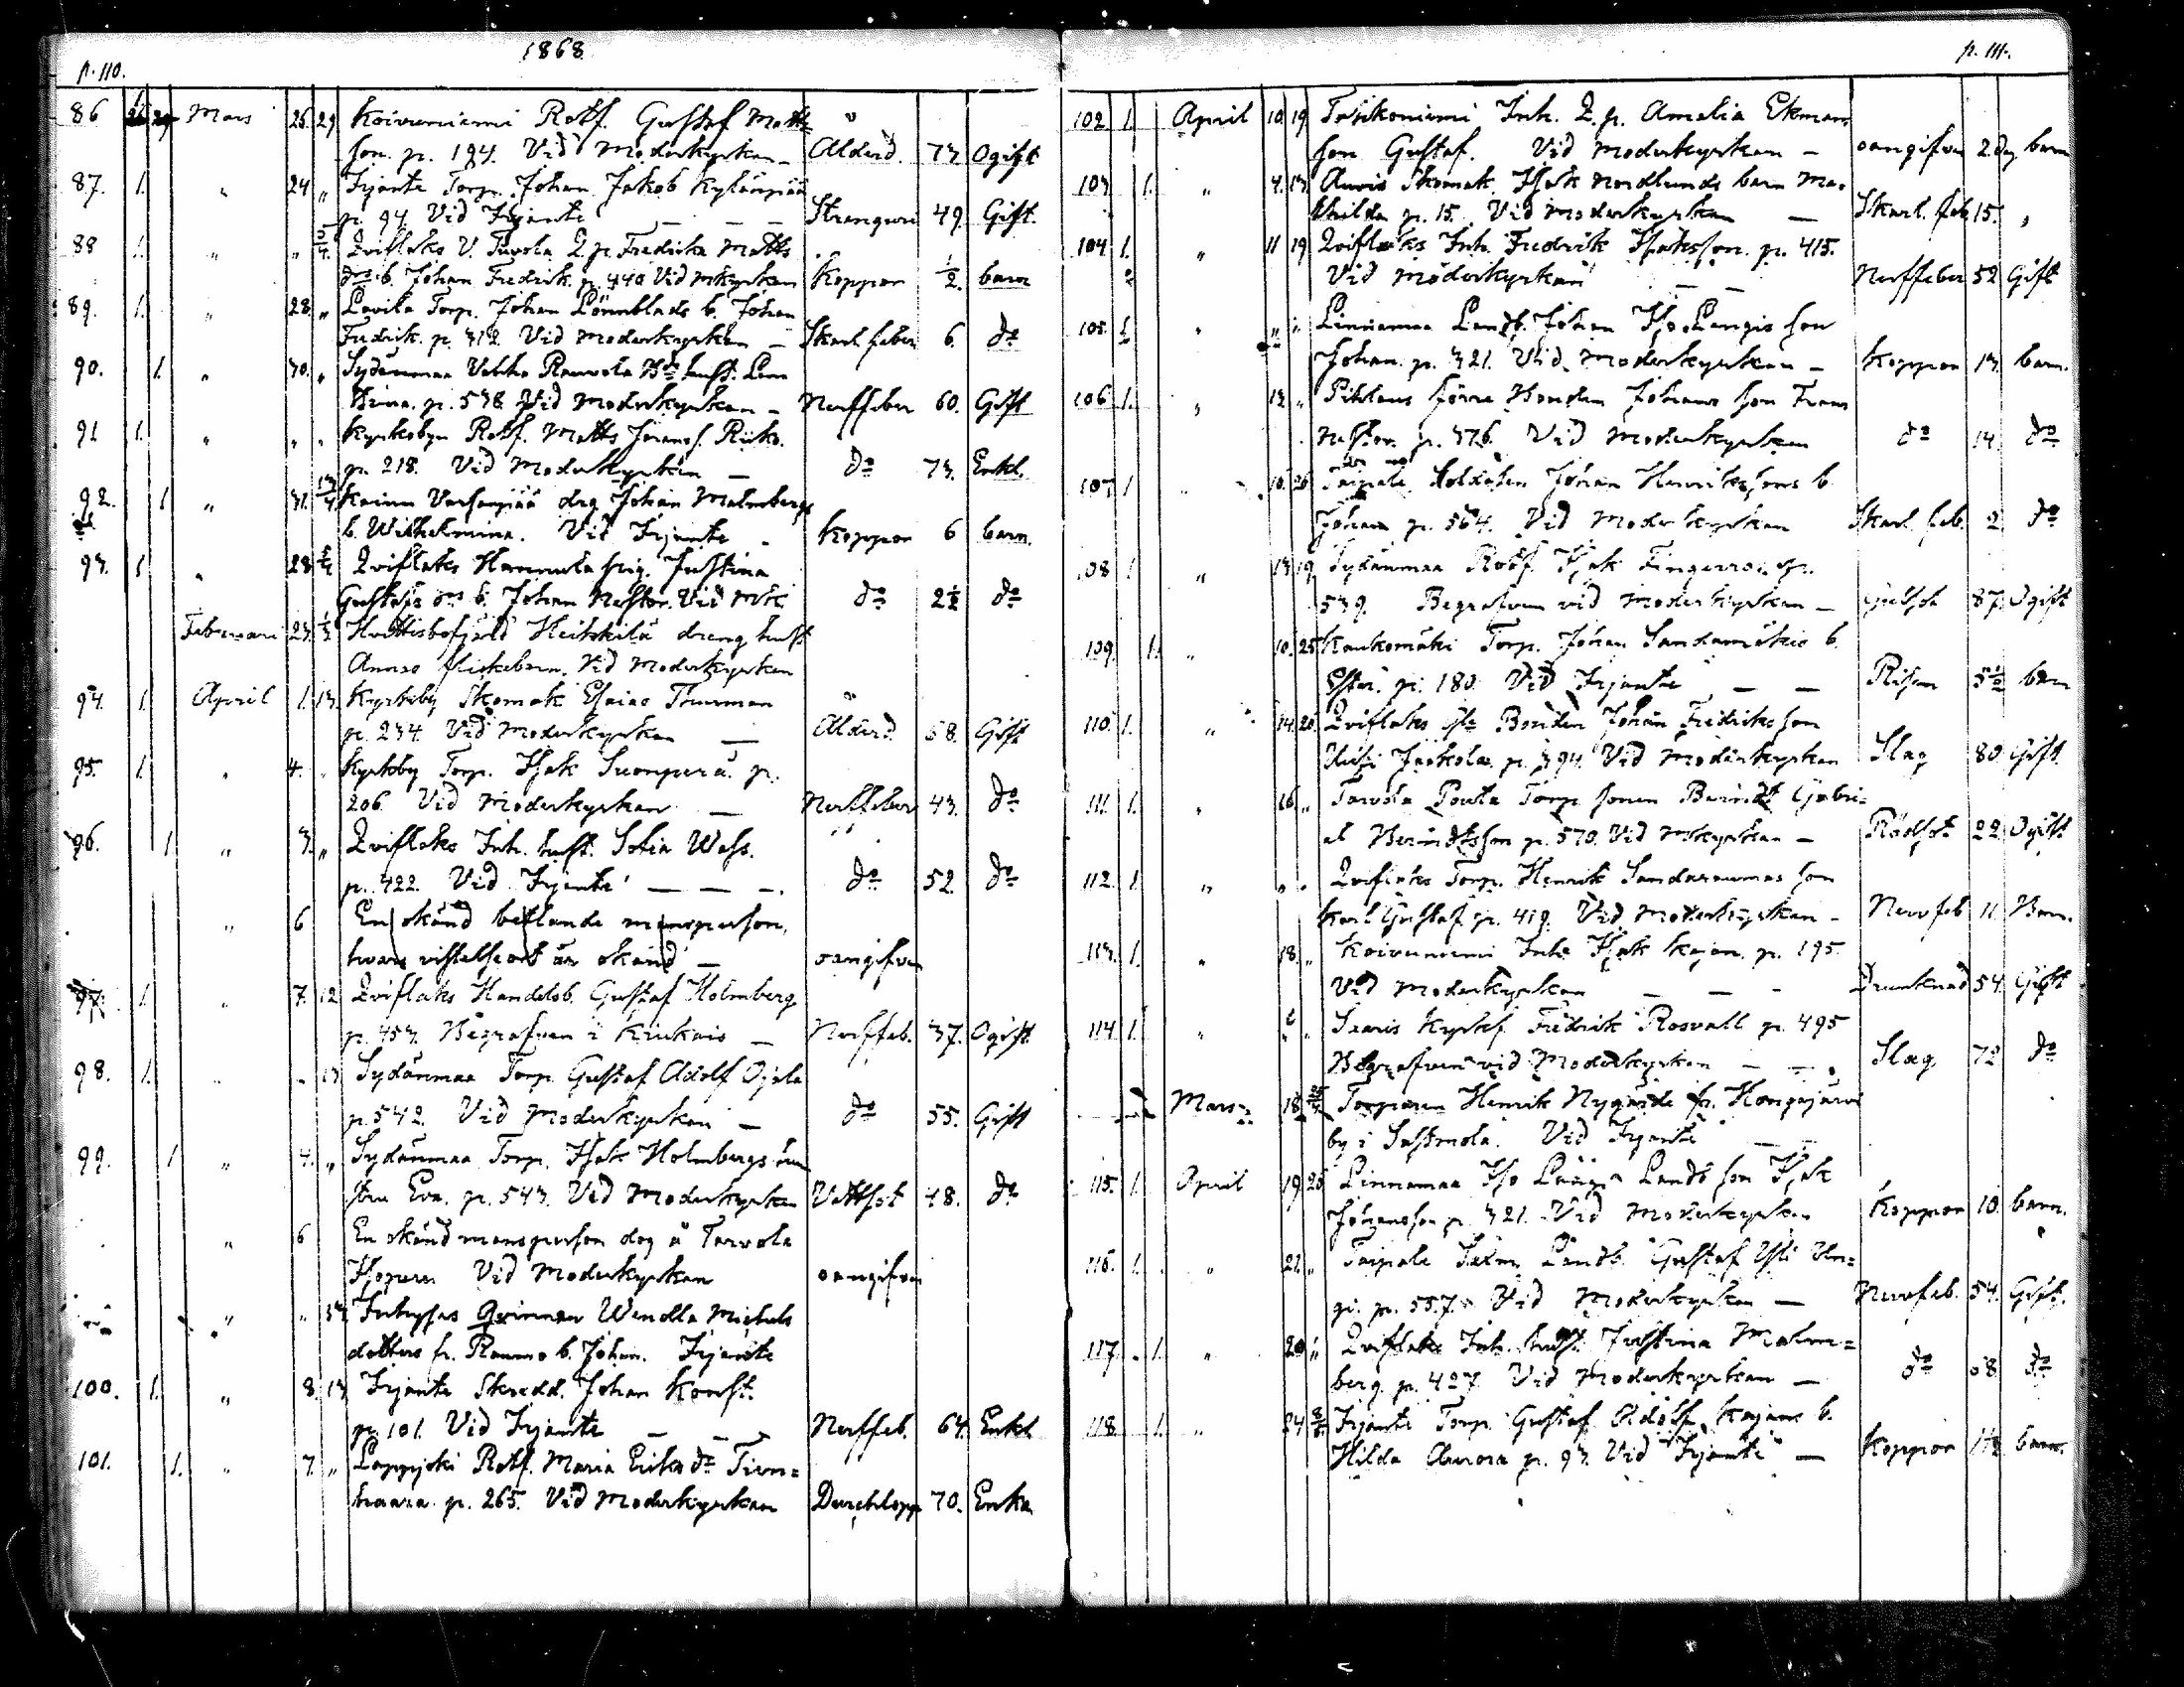 1868
p. 110.
86 Mars 25. 29 Koivuniemi Rotf. Gustaf Matts
son. p. 194. Vid Moderkyrkan — Ålderd. 73 Ogift
87. 1. „ 24 „ Irjante Torp. Johan Jakob Kylänpää
p. 94. Vid Irjante — — — Stranguri 49. Gift.
88 1. „ „ 5/4 Qviflaks V. Tuvola Q. p. Fredrika Matts
drs b. Johan Fredrik. p. 440 Vid Mkyrkan Koppor ½. barn
89. 1. „ 28. „ Lavila Torp. Johan Lönnblads b. Johan
Fredrik. p. 312. Vid Moderkyrkan — Skarl. feber 6. do
90. 1. „ 30. „ Sydänmaa Rauvola hust.
Stina. p. 538. Vid Moderkyrkan — Nerffeber 60. Gift
91 1. „ „ „ Kyrkobyn Rotf. Matts
p. 218. Vid Moderkyrkan — do 73. Enkl.
92. 1 „ 31. 13/4 drg Johan Malmbergs
b. Wilhelmina. Vid Irjante — Koppor 6 barn.
93. 1 „ 28 Qviflaks Hannula Justina
Gustafs drs b. Johan Nestor. Vid Mk. do 2½ do
Februari 23. Hvittisbofjärd Heikkilä dreng hust
Annas flickebarn. Vid Moderkyrkan
94. 1. April 1. 13. Kyrkoby Skomak. Esaias Thurman
p. 234. Vid Moderkyrkan — Ålderd. 68. Gift
95. 1. „ 4. „ Kyrkoby Torp. Isak Suonperä. p.
206. Vid Moderkyrkan — Nerffeber 43. do
96. 1 „ 3. „ Qviflaks Inh. hust. Sofia Wass.
p. 422. Vid Irjante — — —. do 52. do
„ 6 En okänd betlande mansperson,
hvars vistelseort är okänd — oangifven
97. 1. „ 7. 12 Qviflaks Handelsb. Gustaf Holmberg
p. 453. Begrafven i Kiukais — Nerffeb. 37. Ogift
98. 1. „ „ 13 Sydänmaa Torp. Gustaf Adolf Ojala
p. 542. Vid Moderkyrkan — do 55. Gift
99. 1 „ 4. „ Sydänmaa Torp. Isak Holmbergs hu
stru Eva. p. 543. Vid Moderkyrkan Vattsot 48. do
„ 6 En okänd mansperson dog å Tarvola
Vid Moderkyrkan oangifven
„ „ Inhyses Qvinnan Wendla Michels
dotters fr. Raumo b. Johan. Irjante
100. 1. „ 8. 13 Irjante Skredd. Johan Konst.
p. 101. Vid Irjante — — Nerffeb. 64. Enkl
101. 1. „ 7. „ Lappijoki Rotf. Maria Erika dr
p. 265. Vid Moderkyrkan 70. Enka
p. 111.
102. 1. April 10. 19. Inh. Q. p. Amalia Ekmans
son Gustaf. Vid Moderkyrkan — oangifven 2 dag barn
103 1. „ 4. 13. Auvis Skomak. Isak Nordlunds barn Ma-
thilda p. 15. Vid Moderkyrkan — Skarl. feb. 15. „
104. 1. „ 11 19 Qviflaks Inh. Fredrik Isaksson. p. 415.
Vid Moderkyrkan — — Nerffeber 52 Gift
105. 1. „ „ „ Linnamaa Landb. Johan Iso Längis son
Johan. p. 321. Vid Moderkyrkan — Koppor 13. barn.
106. 1. „ 12 „ Pihlaus förra Bonden Johans son Frans
Nestor. p. 376. Vid Moderkyrkan do 14. do
107. 1 „ 10. 26 Taipale Soldaten Johan Henrikssons b.
Johan p. 564. Vid Moderkyrkan Skarl. feb. 2 do
108 1. „ 13 19 Sydänmaa Rotf. Isak Fingerroos p.
539. Begrafven vid Moderkyrkan — Gulsot 87. Ogift
109. 1. „ 10. 25 Kaukomäki Torp. Johan Sandamäkis b.
Ester. p. 180. Vid Irjante — — Risen 5½ barn
110. 1. „ 14. 26. Qviflaks Bonden Johan Fredriksson
Uusi Jaakola. p. 394. Vid Moderkyrkan Slag 80. Gift.
111. 1. „ 16 „ Tarvola Pouta Torp. sonen Berndt Gabri-
el Berndtsson p. 570. Vid Mkyrkan — Rödsot 22. Ogift
112. 1. „ „ „ Qviflaks Torp. Henrik Sandaraumas son
Karl Gustaf. p. 419. Vid Moderkyrkan — Nervfeb. 11. Barn.
113. 1. „ 18. „ Koivuniemi Inh. Isak Kajan. p. 195.
Vid Moderkyrkan — — — Drunknad 54. Gift
114. 1. „ „ „ Fredrik Rosvall p. 495
Begrafven vid Moderkyrkan — — Slag 72. do
Mars 18 Torparen Henrik Nygårds fr. Hongojärvi
by i Sastmola. Vid Irjante — —
115. 1. April 19 26 Linnamaa Iso Längis Landb. son Isak
Johansson p. 321. Vid Moderkyrkan Koppor 10. barn.
116. 1. „ 21. „ Taipale Landb. Gustaf
p. 557. Vid Moderkyrkan — Nervfeb. 54. Gift.
117. 1. „ 20 „ Qviflaks Inh. hust. Justina Malm-
berg. p. 427. Vid Moderkyrkan — do 58 do
118. 1. „ 24 Irjante Torp. Gustaf Adolf Kajans b.
Hilda Aurora p. 93. Vid Irjante — Koppor 1½ barn.